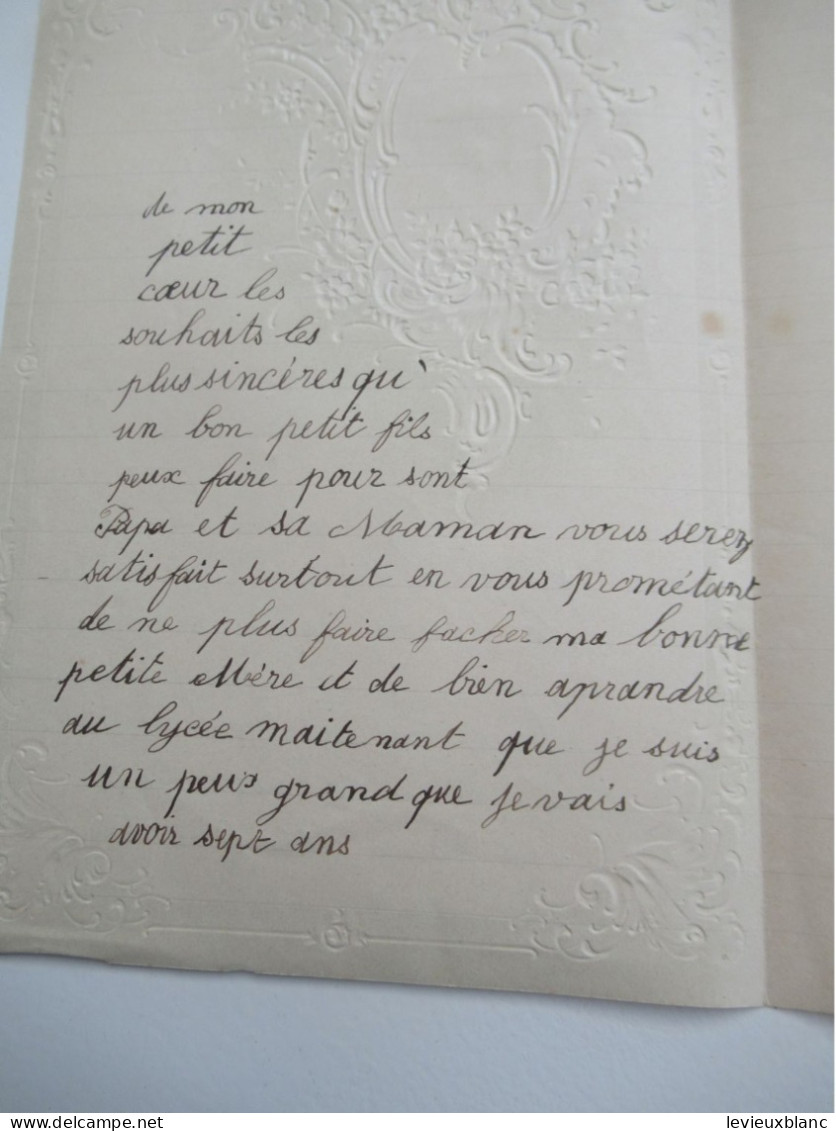 de mon
petit
cœur les
souhaits les
plus sincéres qu'
un bon petit fils
peux faire pour sont
Papa et sa Maman vous serez
satisfait surtout en vous prométant
de ne plus faire facher ma bonne
petite Mére et de bien aprandre
au lycée maitenant que je suis
un peux grand que je vais
avoir sept ans
levieuxblanc